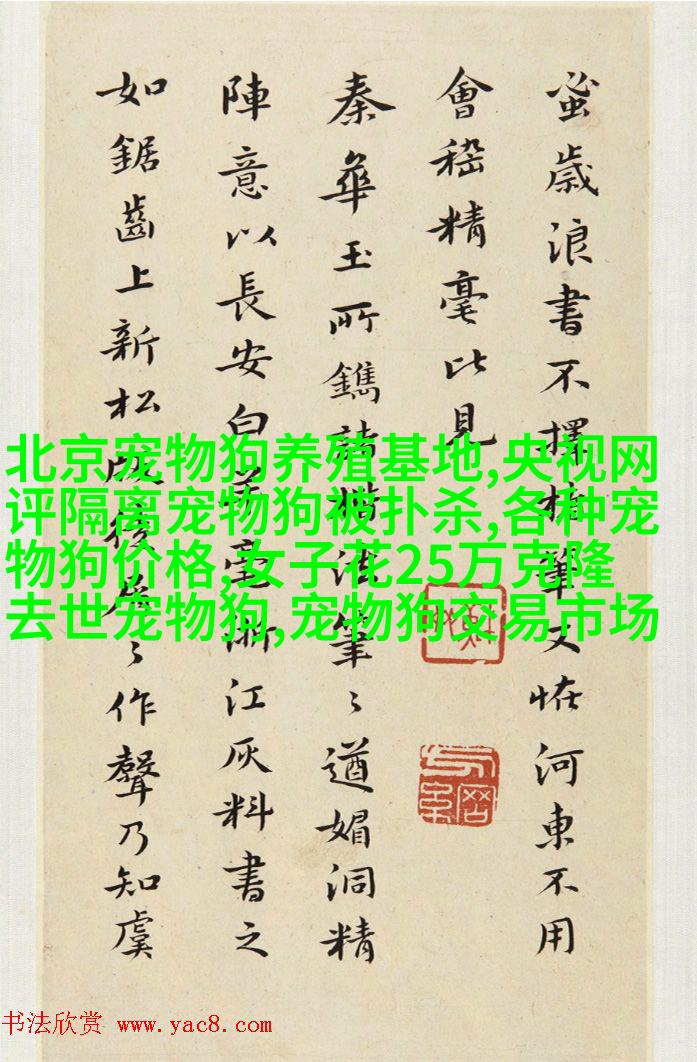 蚤歲浪書不擇楮筆又恠河東不用
會稽精毫比見
秦華玉所鐫諸楷法筆〻遒媚洞精
陣意以長安白羊毫浙江灰料書之
如鋸齒上新松後〻作聲乃知虞
北京宠物狗养殖基地,央视网
评隔离宠物狗被扑杀,各种宠
物狗价格,女子花25万克隆
去世宠物狗,宠物狗交易市场
书法欣赏 www.yac8.com